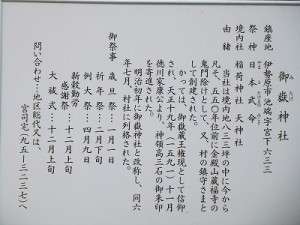 御嶽神社
鎮座地 伊勢原市池端字宮下六三三
祭神 日本武命
境内社 稲荷神社 天神社
由緒
当社は境内地八三三坪の中に今から
凡そ、五五〇年位前に金殿山蔵福寺の
鬼門除けとして、又、村の鎮守さまと
して創建された。
かつては、御嶽蔵王権現として信仰
され、天正十九年(一五九一)十一月
徳川家康公より、神領高三石の御朱印
を寄進された。
明治初年に御嶽神社と改称し、同六
年七月、村社に列格された。
御祭事
歳旦祭…一月一日
祈年祭…二月
例大祭…四月九日
新穀勤労
感謝祭…十二月上旬
大祓式…十二月上旬
問い合わせ…地区総代又は、
宮司宅(九五―三二三七)へ